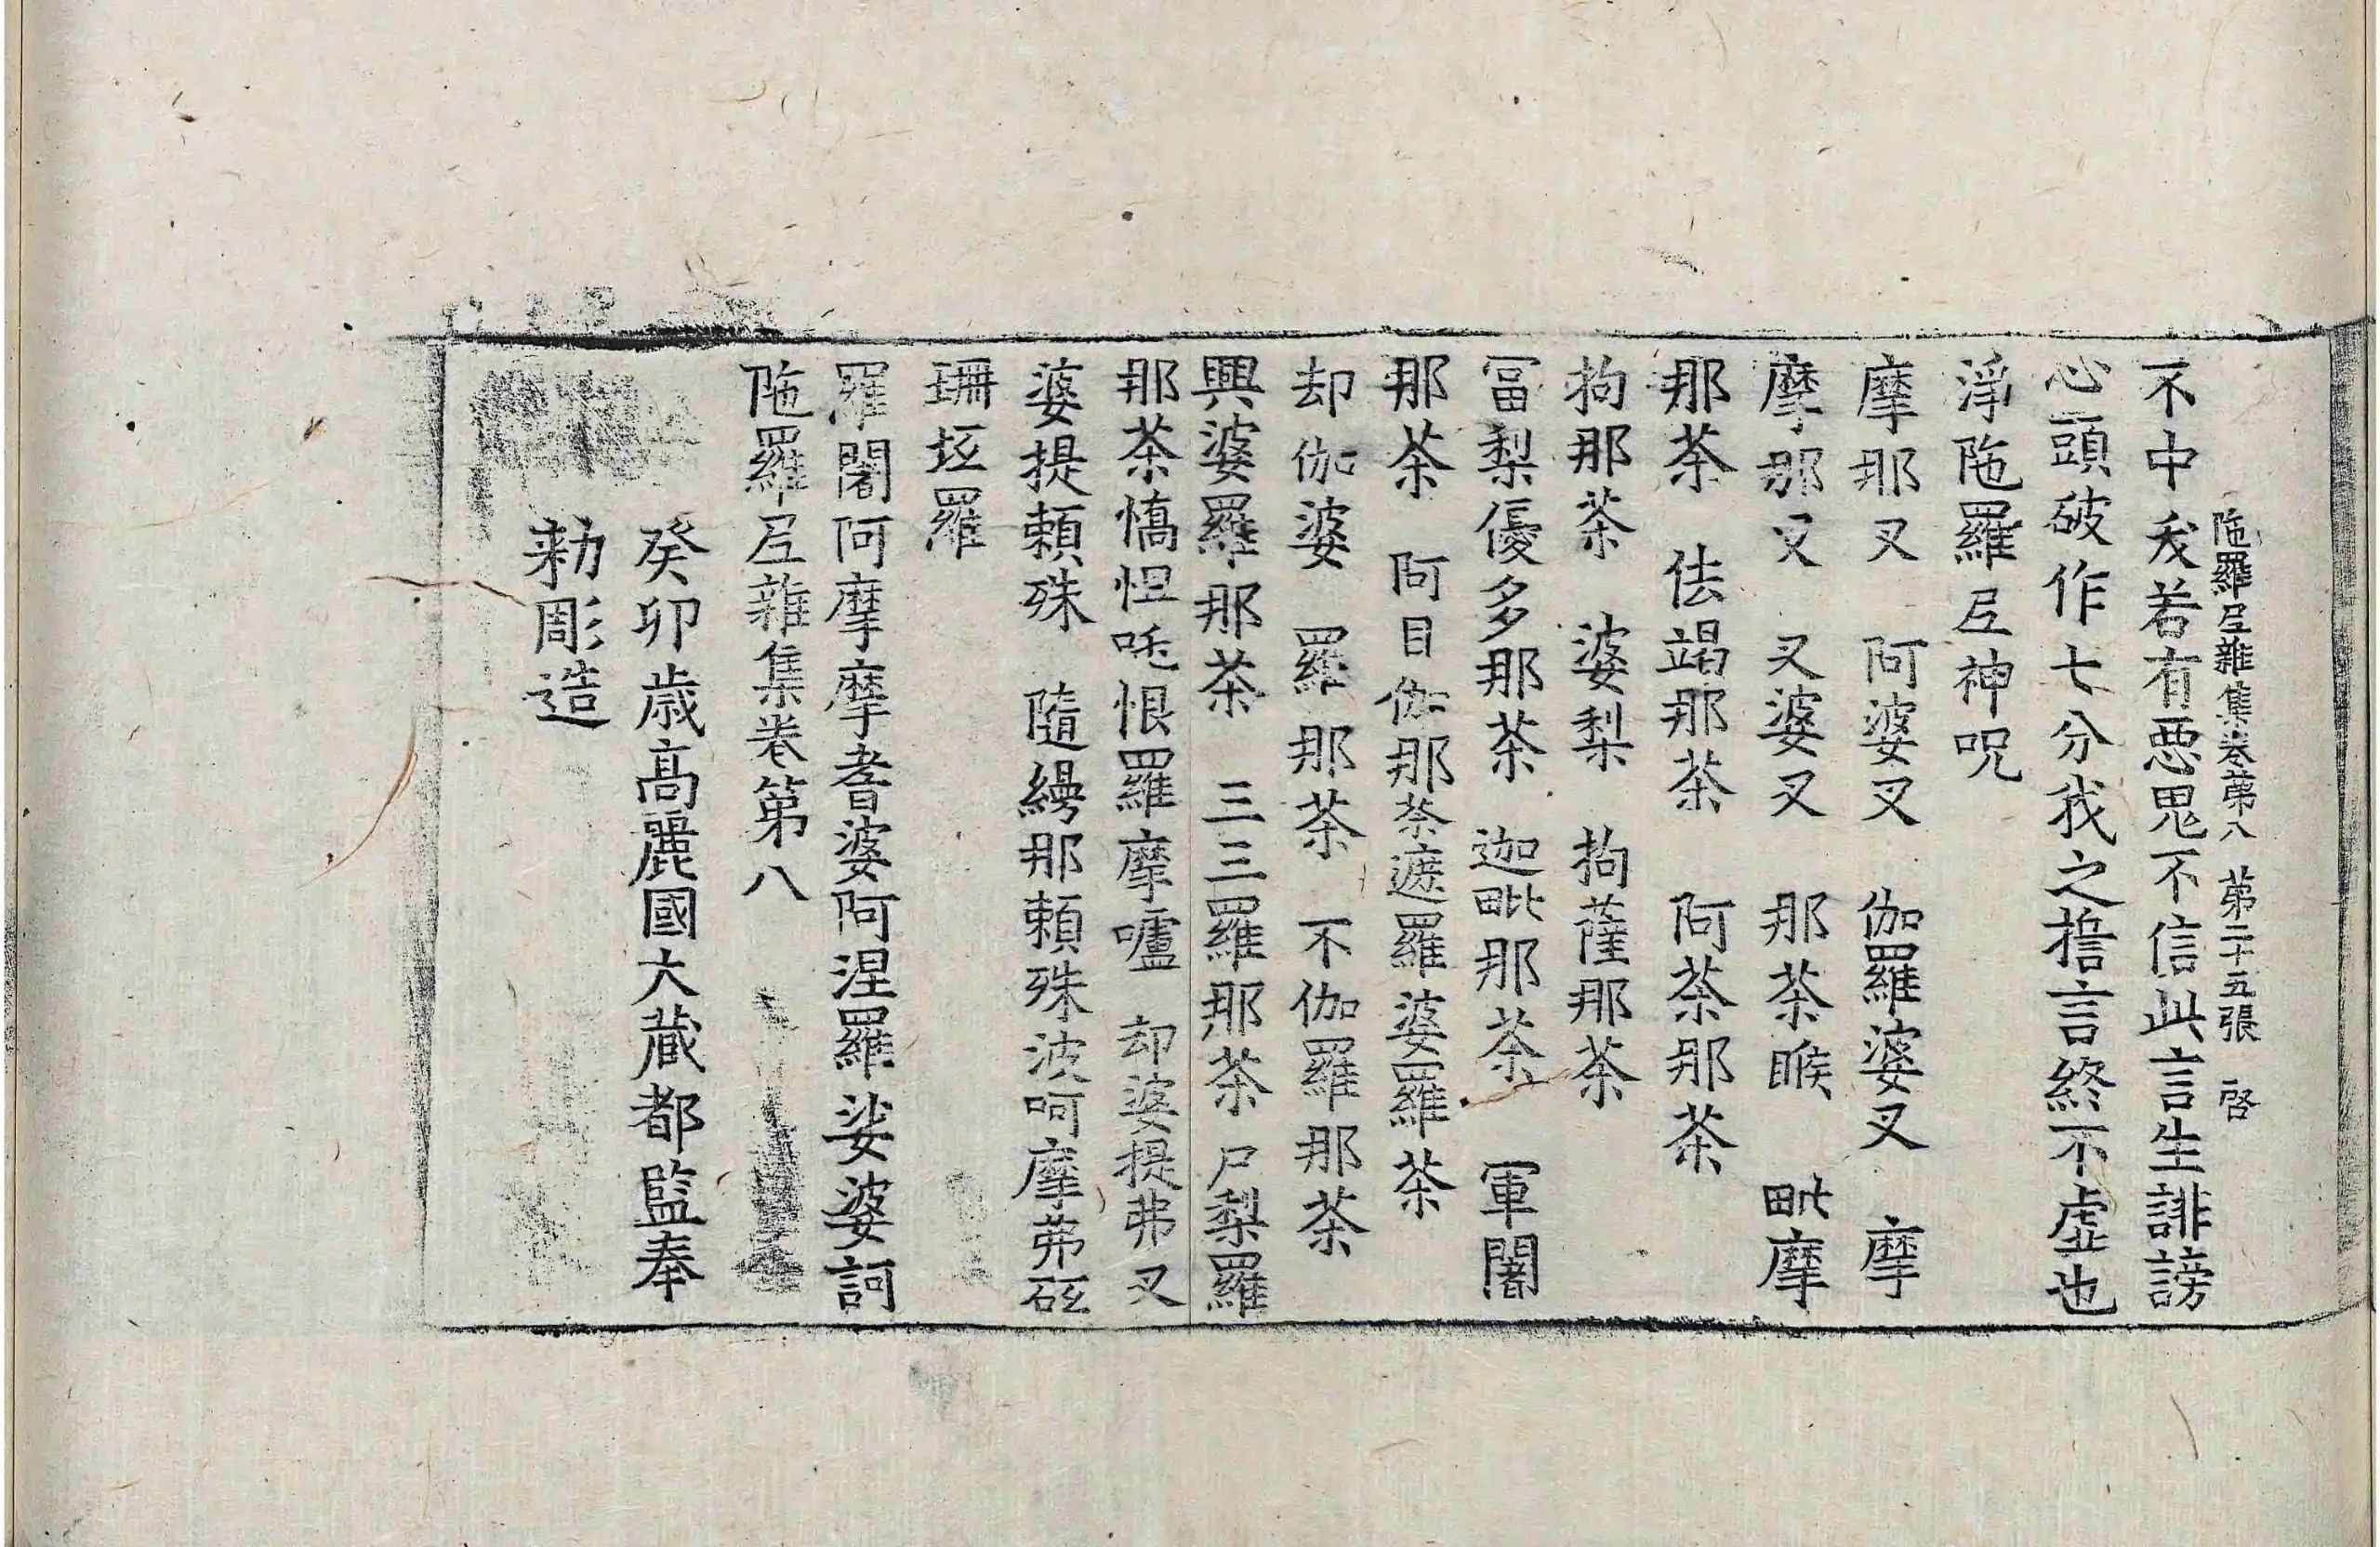 陁羅𡰱雜集卷第八　第二十五張　啓
不中夭若有惡鬼不信此言生誹謗
心頭破作七分我之擔言終不虛也
淨陁羅𡰱神呪
摩那叉　阿婆叉　伽羅婆叉　摩
摩那叉　叉婆叉　那茶睺　毗摩
那茶　佉竭那茶　阿茶那茶
拘那茶　婆梨　拘薩那茶
冨梨優多那茶　迦毗那茶　軍闍
那茶　阿目伽那茶遮羅婆羅茶
却伽婆　羅那茶　不伽羅那茶
興婆羅那茶　三三羅那茶　尸梨羅
那茶憍怛呧恨羅摩嚧　却婆提弗叉
婆提賴殊　隨縵那賴殊波呵摩弗砡
珊坻羅
羅闍阿摩摩耆婆阿涅羅娑婆訶
陁羅𡰱雜集卷第八
癸卯歲高麗國大藏都監奉
勑彫造